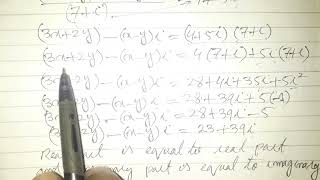 (7+i)
(3x+2y)-(x-y)i=(4+5i)(7+i)
(3x+2y)-(x-y)i=4(7+i)+5i(7+i)
(3x+2y)-(x-y)i=28+4i+35i+5i²
(3x+2y)-(x-y)i=28+39i+5(-1)
(3x+2y)-(x-y)i=28+39i-5
(3x+2y)-(x-y)i=23+39i
Real part is equal to real part
part is equal to imaginary